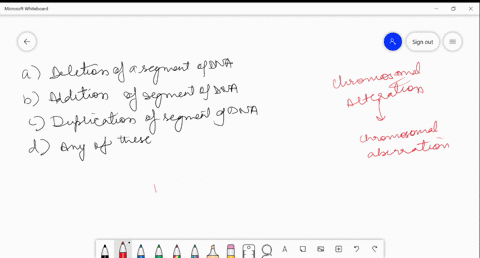 Microsoft Whiteboard
Sign out
a) Deletion of a segment of DNA
b) Addition of segment of DNA
c) Duplication of segment of DNA
d) Any of these
chromosomal
alteration
chromosomal
aberration
A